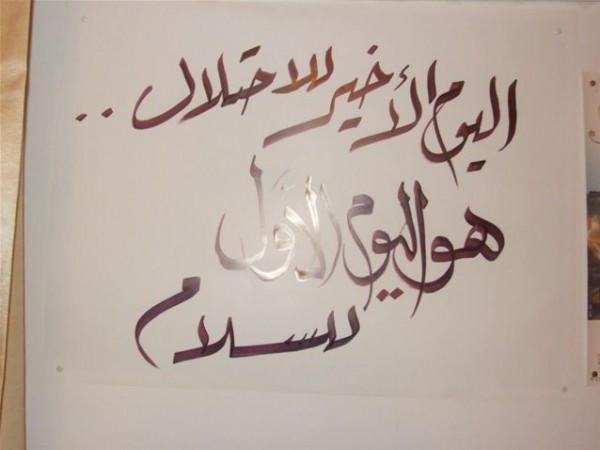 اليوم الأخير للاحتلال ..
هو اليوم الأول
للسلام